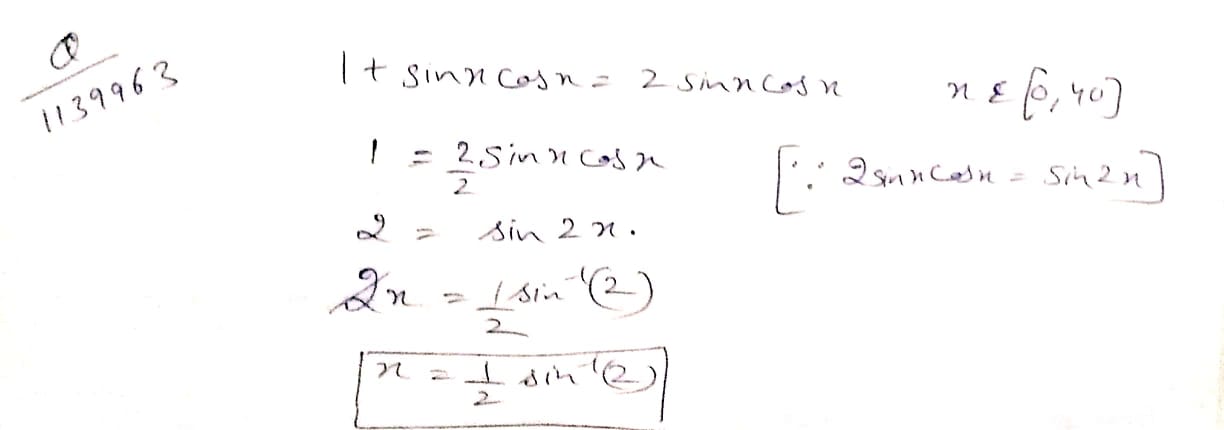 Q
1139963
1 + sinx cosx = 2 sinx cosx    x ε [0, 40]
1 = 2/2 sinx cosx    [∵ 2sinx cosx = sin 2x]
2 = sin 2x.
2x = 1/2 sin⁻¹(2)
x = 1/2 sin⁻¹(2)